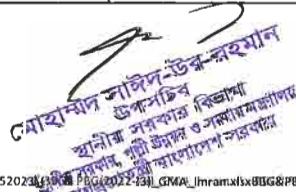 মোহাম্মদ সাঈদ-উর-রহমান
উপসচিব
স্থানীয় সরকার বিভাগ
স্থানীয় সরকার, পল্লী উন্নয়ন ও সমবায় মন্ত্রণালয়
গণপ্রজাতন্ত্রী বাংলাদেশ সরকার
PBG(2022-23)_GMA_Imran.xlsx